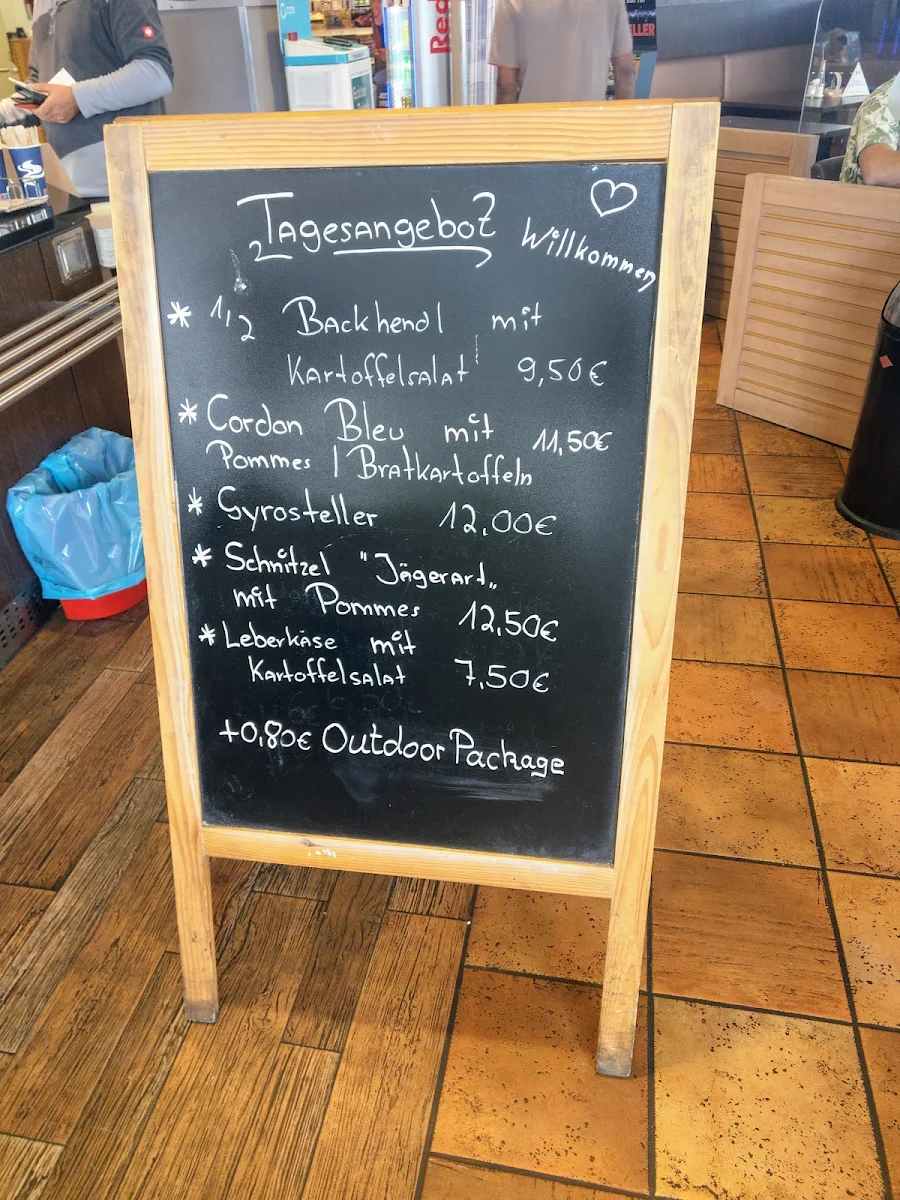 Red
LLER
Tagesangebot
Willkommen
* 1/2 Backhendl mit
Kartoffelsalat 9,50€
* Cordon Bleu mit 11,50€
Pommes / Bratkartoffeln
* Gyrosteller 12,00€
* Schnitzel "Jägerart„
mit Pommes 12,50€
* Leberkäse mit
Kartoffelsalat 7,50€
+0,80€ Outdoor Package